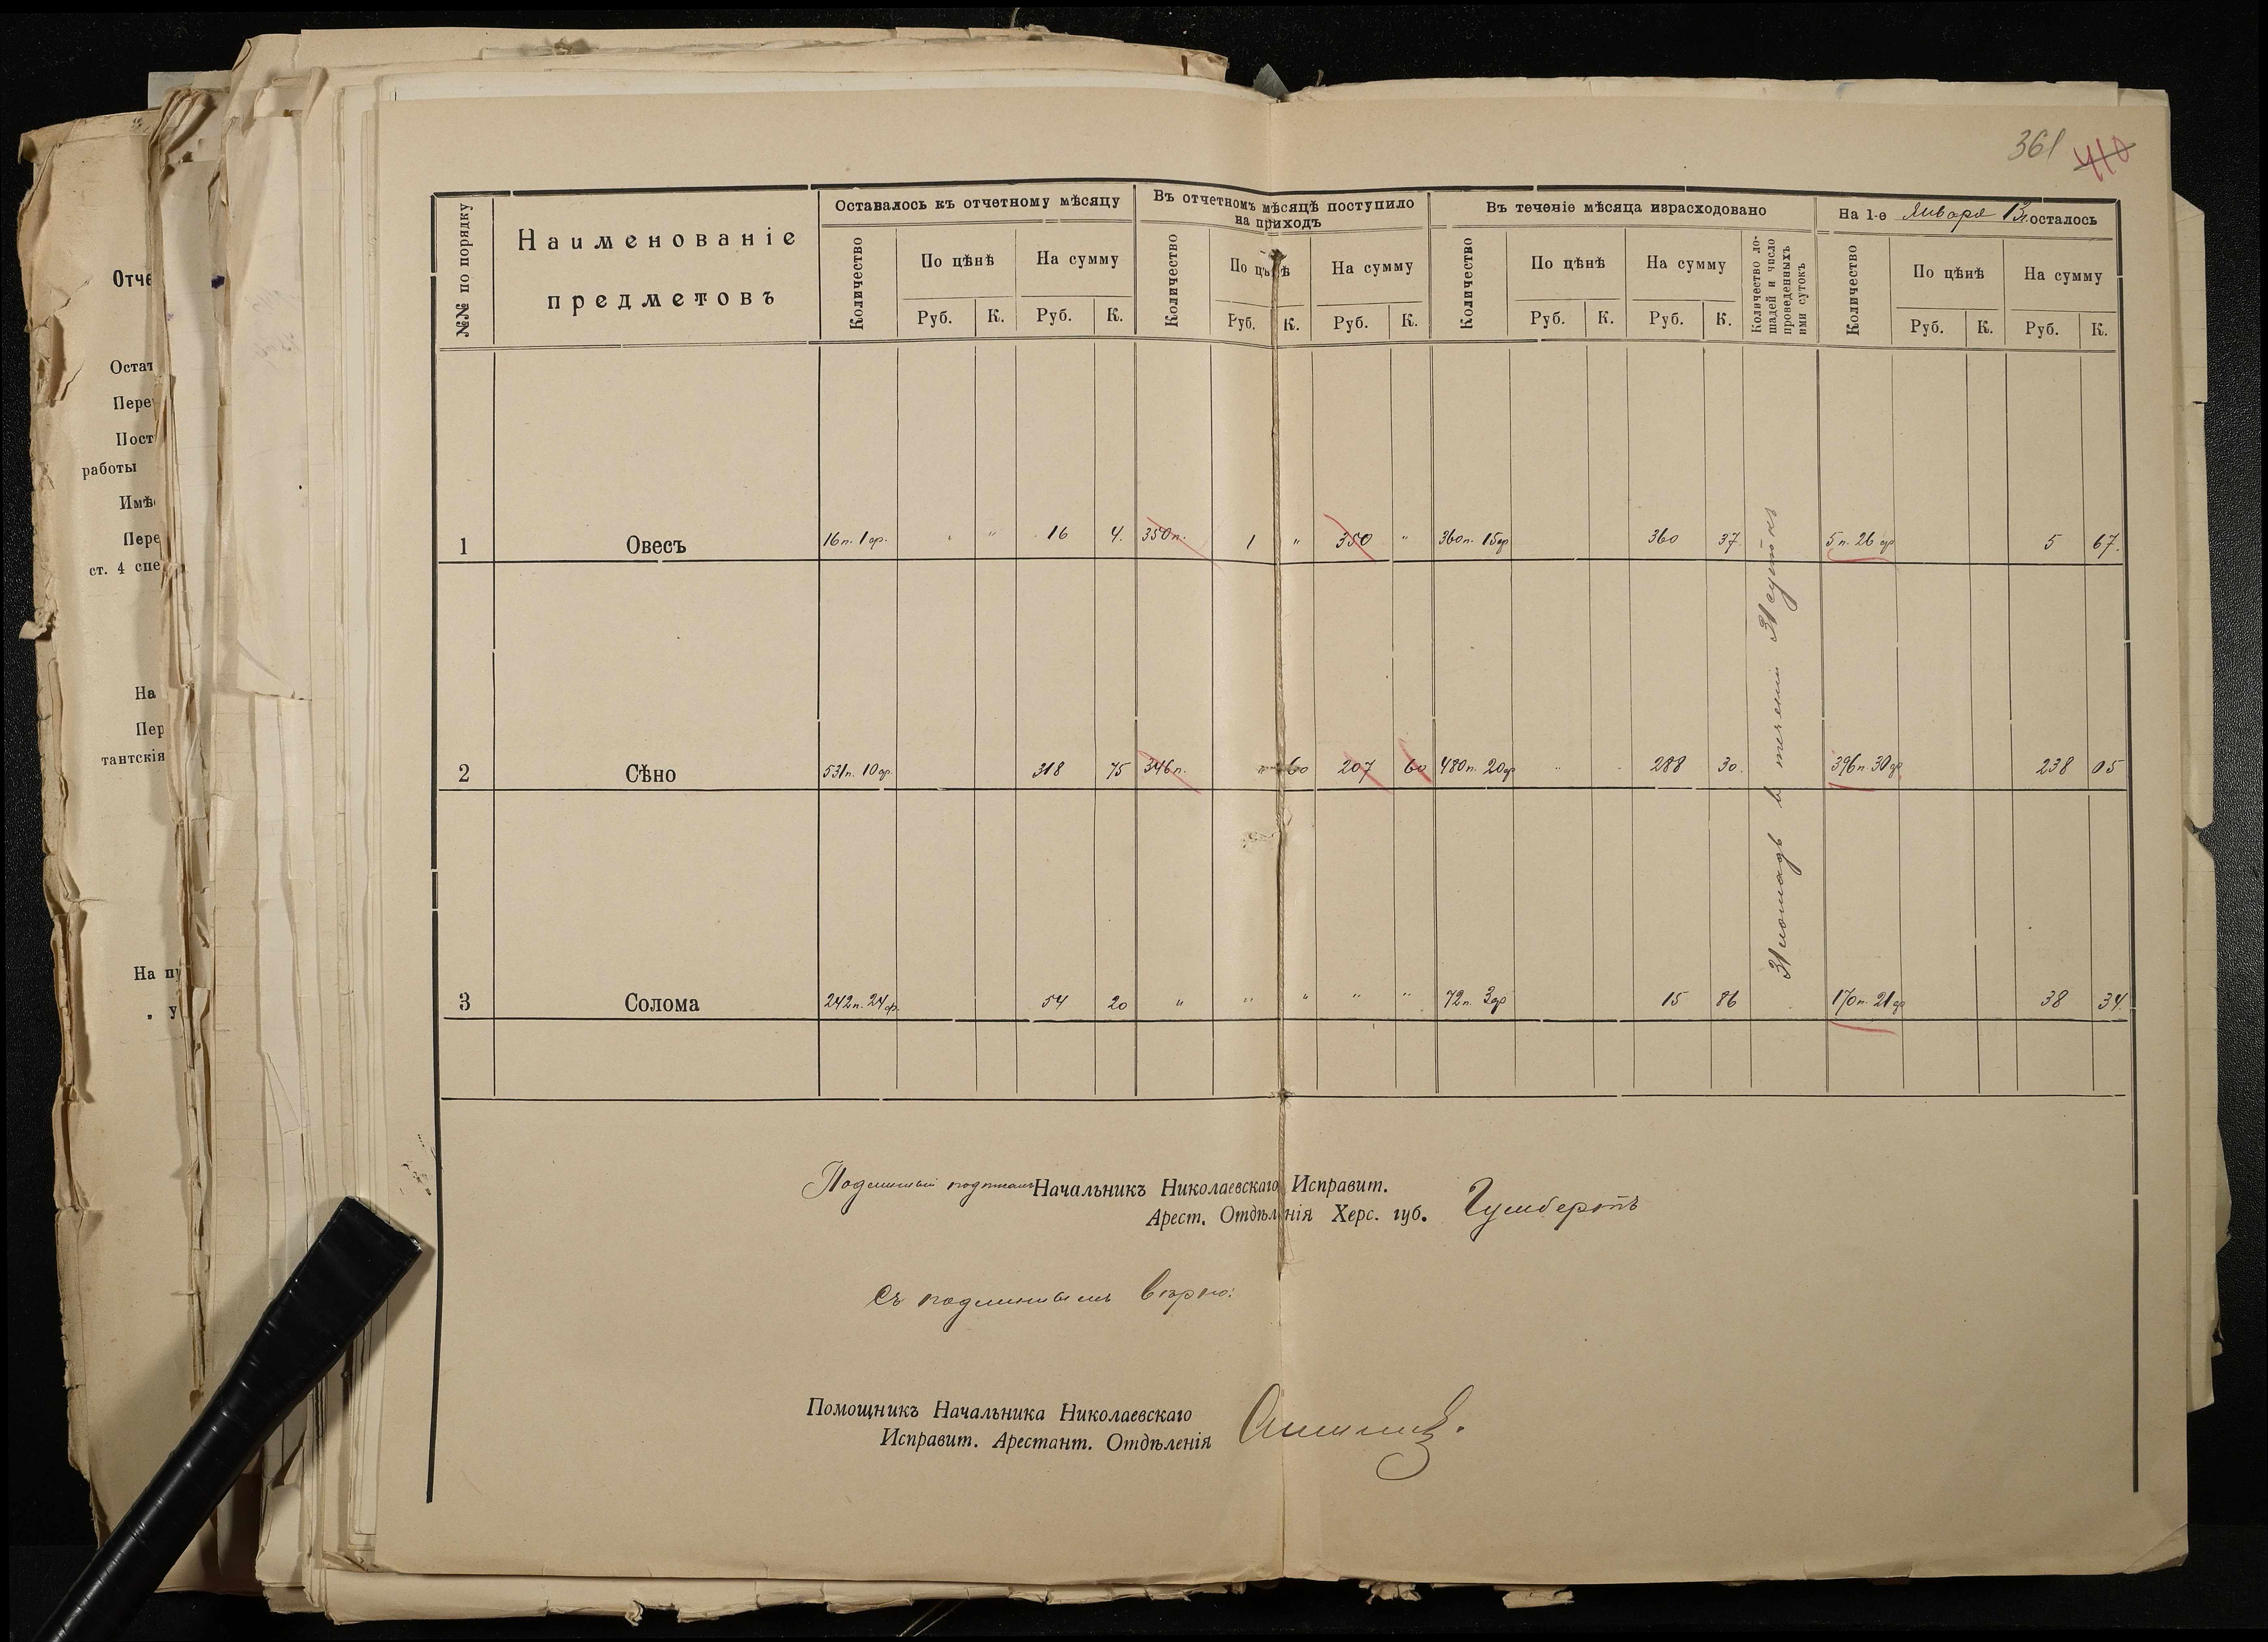 361 410
Отче
Остат
Пере
Пост
работы
Имѣ
Пере
ст. 4 спе
На
Пер
тантскія
На пу
„ у
№№ по порядку
Наименованіе
предметовъ
Оставалось къ отчетному мѣсяцу
Количество
По цѣнѣ На сумму
Руб. К. Руб. К.
Въ отчетномъ мѣсяцѣ поступило
на приходъ
Количество
По цѣнѣ На сумму
Руб. К. Руб. К.
Въ теченіе мѣсяца израсходовано
Количество
По цѣнѣ На сумму
Руб. К. Руб. К.
Количество ло-
шадей и число
проведенныхъ
ими сутокъ
На 1-е Января 13 г. осталось
Количество
По цѣнѣ На сумму
Руб. К. Руб. К.
1 Овесъ 16п. 1ф. „ „ 16 4. 350п. 1 „ 350 „ 360п. 15ф 360 37. 5п. 26ф 5 67.
2 Сѣно 531п. 10ф. 318 75 346п. „ 60 207 60 480п. 20ф „ 288 30. 396п. 30ф 238 05
3 Солома 242п. 24ф. 54 20 „ „ „ „ „ 72п. 3ф 15 86 170п. 21ф 38 34.
31 лошадь в течении 31 сутокъ
Подлинный подписалъ Начальникъ Николаевскаго Исправит.
Арест. Отдѣленія Херс. губ. Гумбертъ
Съ подлиннымъ вѣрно:
Помощникъ Начальника Николаевскаго
Исправит. Арестант. Отдѣленія